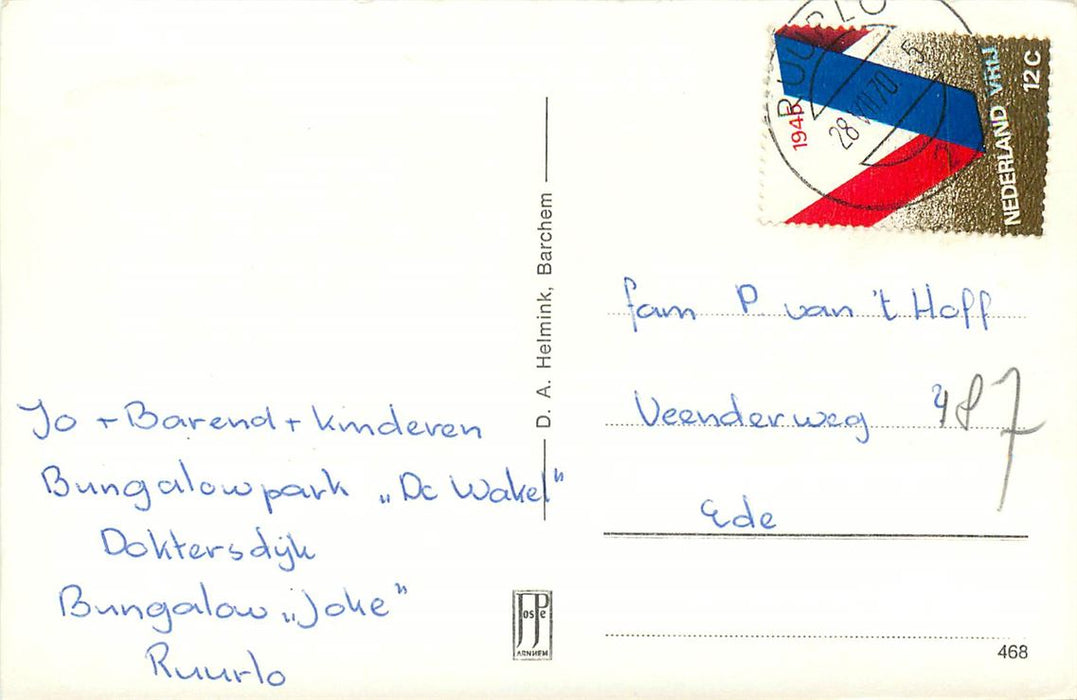 RUURLO
28 VII 70 5
2
1945
NEDERLAND VRIJ
12 C
fam P. van 't Hoff
Veenderweg
Ede
Jo + Barend + kinderen
Bungalowpark „De Wakel"
Doktersdijk
Bungalow „Joke"
Ruurlo
D. A. Helmink, Barchem
JosPe
ARNHEM
468